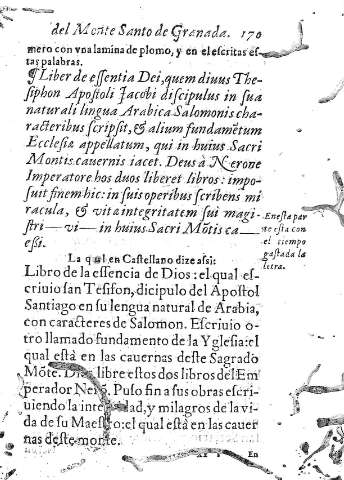 del Monte Santo de Granada. 170
mero con vna lamina de plomo, y en el escritas es-
tas palabras.
¶ Liber de essentia Dei, quem diuus The-
siphon Apostoli Jacobi discipulus in sua
naturali lingua Arabica Salomonis cha-
racteribus scripsit, & alium fundamẽtum
Ecclesia appellatum, qui in huius Sacri
Montis cauernis iacet. Deus à Nerone
Imperatore hos duos liberet libros: impo-
suit finem hic: in suis operibus scribens mi
racula, & vita integritatem sui magi-
stri — vi — in huius Sacri Mõtis ca —
essi.
En esta par
te esta con
el tiempo
gastada la
letra.
La qual en Castellano dize assi:
Libro de la essencia de Dios: el qual es-
criuio san Tesifon, dicipulo del Apostol
Santiago en su lengua natural de Arabia,
con caracteres de Salomon. Escriuio o-
tro llamado fundamento de la Yglesia: el
qual està en las cauernas deste Sagrado
Mõte. Dios libre estos dos libros del Em
perador Nerõ. Puso fin a sus obras escri-
uiendo la integridad, y milagros de la vi-
da de su Maestro: el qual està en las cauer
nas deste monte.
En